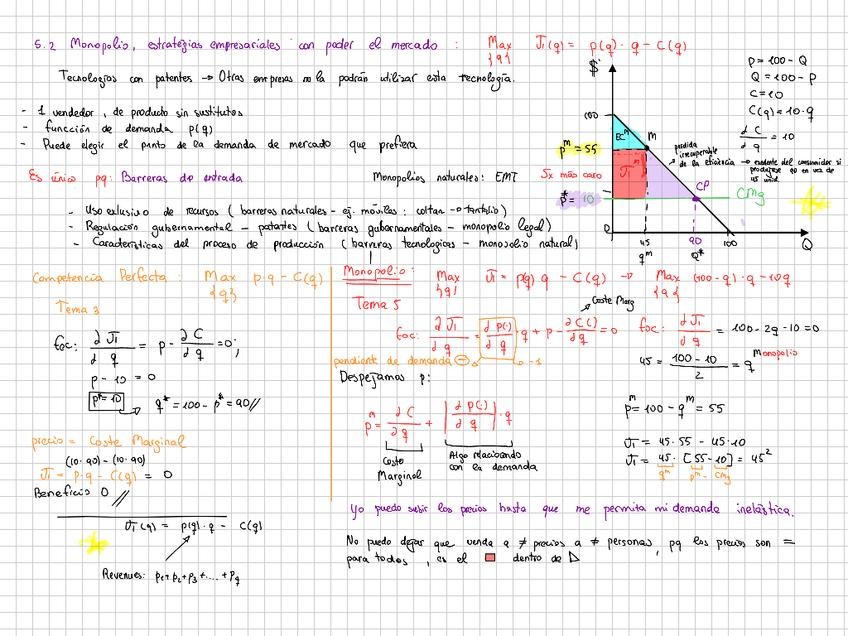 5.2 Monopolio, estrategias empresariales con poder el mercado : Max {q} π(q) = p(q) · q - C(q)
Tecnologias con patentes → Otras empresas no la podrán utilizar esta tecnología.
- 1 vendedor, de producto sin sustitutos
- función de demanda p(q)
- Puede elegir el punto de la demanda de mercado que prefiera
Es único pq: Barreras de entrada
Monopolios naturales: EMT
- Uso exlusivo de recursos ( barreras naturales - ej. móviles: coltan → tantalio)
- Regulación gubernamental - patantes ( barreras gubernamentales - monopolio legal)
- Características del proceso de producción ( barreras tecnologias - monosolio natural)
$
100
EC^m
M
p^m = 55
π^m
5x más caro
p* = 10
CP
CMg
0
45
90
100
q^m
Q*
Q
perdida irrecuperable de la eficiencia → exedente del consumidor si produjese 90 en vez de 45 unid.
p = 100 - Q
Q = 100 - p
C = 10
C(q) = 10 · q
∂C/∂q = 10
Competencia Perfecta : Max {q} p·q - C(q)
Tema 3
foc: ∂π/∂q = p - ∂C/∂q = 0;
p - 10 = 0
p* = 10 → q* = 100 - p* = 90//
precio = Coste Marginal
(10·90) - (10·90)
π = p·q - C(q) = 0
Beneficio 0 //
π(q) = p(q)·q - C(q)
Revenues: p1+p2+p3+....+pq
Monopolio: Max {q} π = p(q) q - C(q) → Max {q} (100-q)·q - 10q
Tema 5
Coste Marg
foc: ∂π/∂q = ∂p(·)/∂q · q + p - ∂C(·)/∂q = 0
pendiente de demanda ⊖ → -1
Despejamos p:
p^m = ∂C/∂q + |∂p(·)/∂q| · q
Costo Marginal
Algo relacionado con la demanda
foc: ∂π/∂q = 100 - 2q - 10 = 0
45 = (100-10)/2 = q^monopolio
p^m = 100 - q^m = 55
π = 45·55 - 45·10
π = 45 · [55-10] = 45²
q^m p^m - CMg
Yo puedo subir los precios hasta que me permita mi demanda inelástica.
No puedo dejar que venda a ≠ precios a ≠ personas, pq los precios son =
para todos, es el dentro de